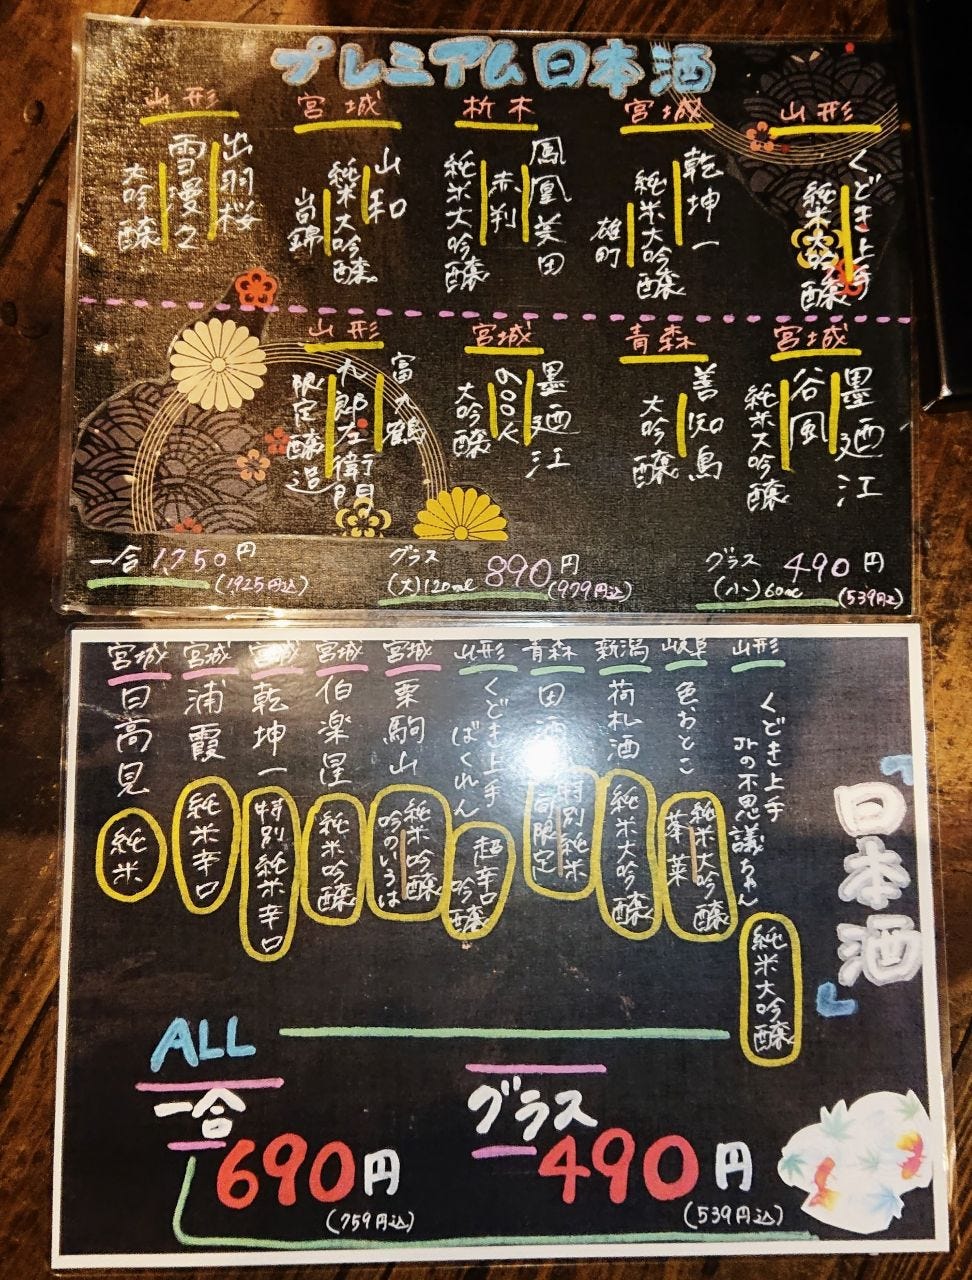 プレミアム日本酒
山形
くどき上手
純米大吟醸
宮城
乾坤一
純米大吟醸
雄町
栃木
鳳凰美田
赤判
純米大吟醸
宮城
山和
純米大吟醸
山形
出羽桜
雪漫々
大吟醸
宮城
墨廼江
谷風
純米大吟醸
青森
善知鳥
大吟醸
宮城
墨廼江
大吟醸
山形
富久鶴
九郎左衛門
限定醸造
一合 1,750円
(1,925円込)
グラス
(大)120ml 890円
(979円込)
グラス
(小)60ml 490円
(539円込)
日本酒
山形
くどき上手
Jrの不思議ちゃん
純米大吟醸
岐阜
色おとこ
純米大吟醸
華菜
新潟
荷札酒
純米大吟醸
青森
田酒
特別純米
旬限定
山形
くどき上手
ばくれん
超辛口
吟醸
宮城
栗駒山
純米吟醸
吟のいろは
宮城
伯楽星
純米吟醸
宮城
乾坤一
特別純米辛口
宮城
浦霞
純米辛口
宮城
日高見
純米
ALL
一合
690円
(759円込)
グラス
490円
(539円込)